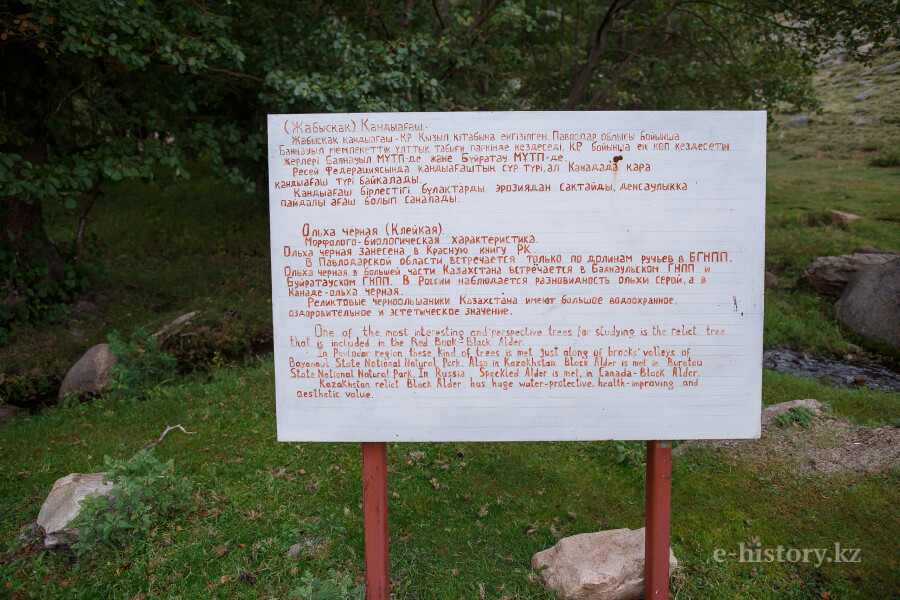 (Жабысқақ) Қандыағаш.
Жабысқақ қандыағаш-ҚР Қызыл кітабына енгізілген. Павлодар облысы бойынша
Баянауыл мемлекеттік ұлттық табиғи паркінде кездеседі. ҚР бойынша ең көп кездесетін
жерлері Баянауыл МҰТП-де және Бұйратау МҰТП-де.
Ресей Федерациясында қандыағаштың сұр түрі, ал Канадада қара
қандыағаш түрі байқалады.
Қандыағаш бірлестігі бұлақтарды эрозиядан сақтайды, денсаулыққа
пайдалы ағаш болып саналады.
Ольха черная (Клейкая)
Морфолого-биологическая характеристика.
Ольха черная занесена в Красную книгу РК.
В Павлодарской области встречается только по долинам ручьев в БГНПП.
Ольха черная в большей части Казахстана встречается в Баянаульском ГНПП и
Буйратауском ГНПП. В России наблюдается разновидность ольхи серой, а в
Канаде-ольха черная.
Реликтовые черноольшаники Казахстана имеют большое водоохранное,
оздоровительное и эстетическое значение.
One of the most interesting and perspective trees for studying is the relict tree
that is included in the Red Book-Black Alder.
In Pavlodar region these kind of trees is met just along of brooks' valleys of
Bayanaul State National Natural Park. Also in Kazakhstan Black Alder is met in Buratau
State National Natural Park. In Russia Speckled Alder is met, in Canada-Black Alder.
Kazakhstan relict Black Alder has huge water-protective, health-improving and
aesthetic value.
e-history.kz